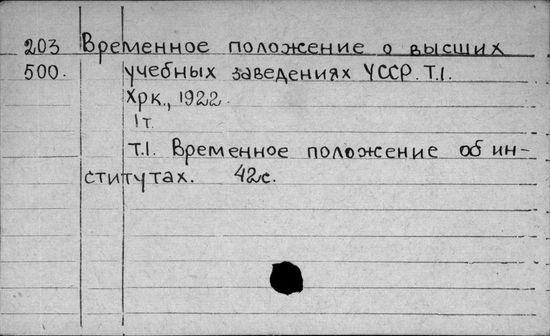 203 Временное положение о высших
500. учебных заведениях УССР. Т.1.
Хрк., 1922.
1т.
Т.1. Временное положение об ин-
ститутах. 42с.